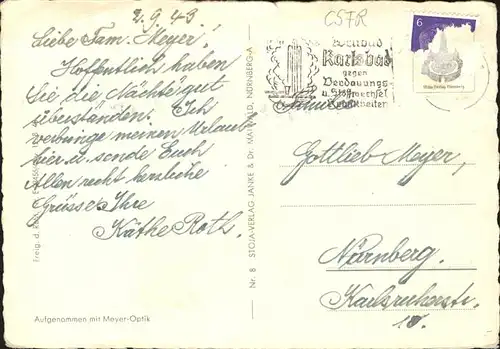 2.9.43.
CSFR
Liebe Fam. Meyer!
Hoffentlich haben
Sie die Nächte gut
überstanden. Ich
verbringe meinen Urlaub
hier u. sende Euch
Allen recht herzliche
Grüsse. Ihre
Käthe Roth.
Aufgenommen mit Meyer-Optik
Nr. 8 STOJA-VERLAG JANKE & Dr. NÜRNBERG-A
6
Weltbad
Karlsbad
gegen
Verdauungs-
u. Stoffwechsel
Krankheiten
Gottlieb Meyer,
Nürnberg.
Karlsruherstr.
10.